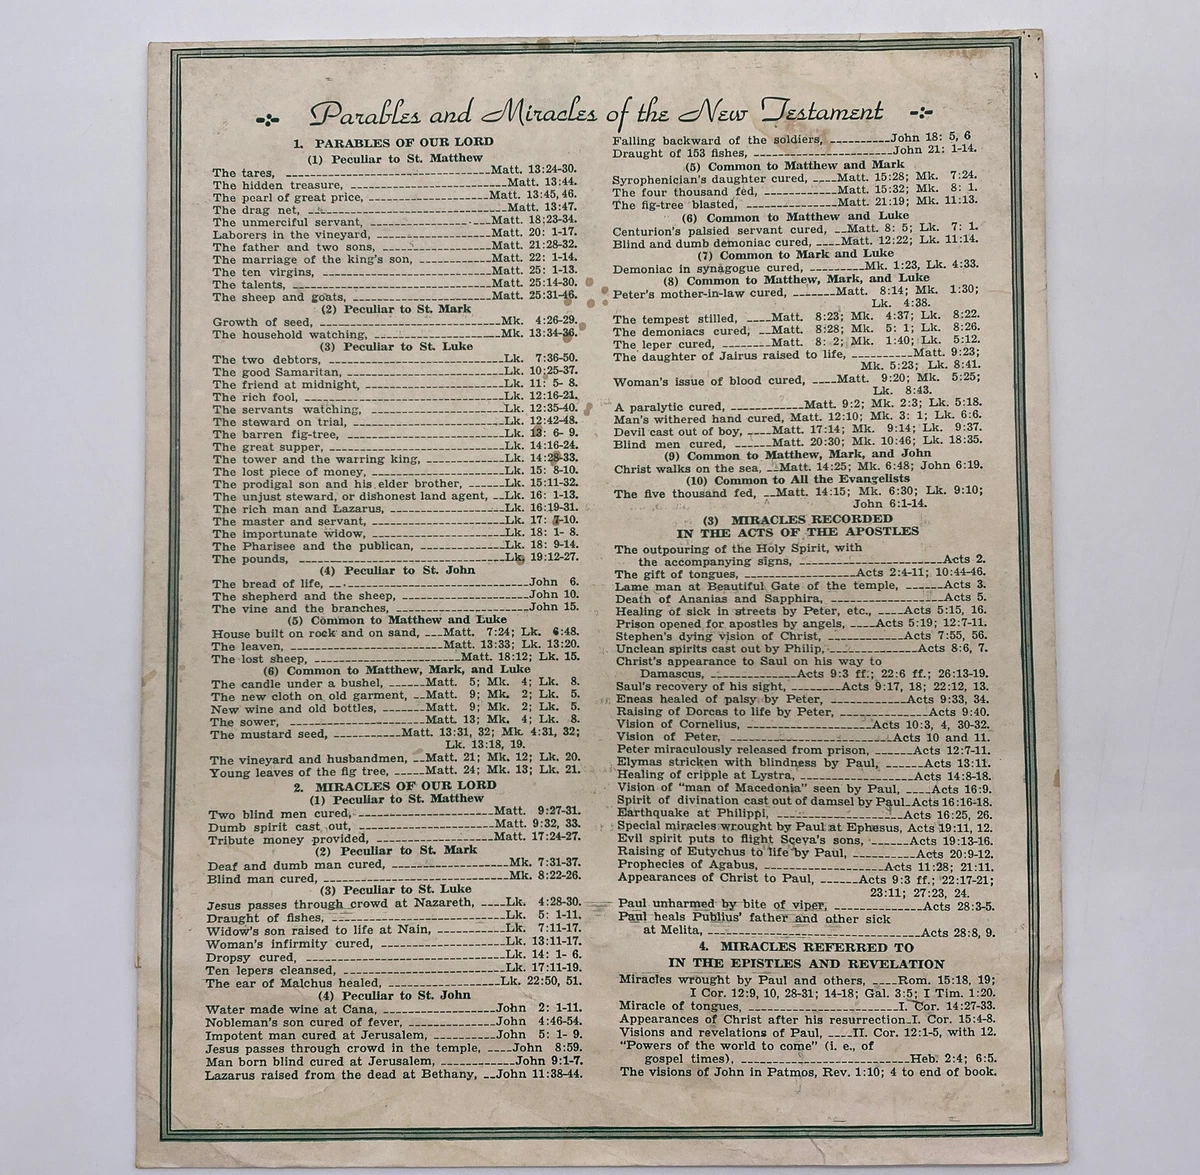 Parables and Miracles of the New Testament
1. PARABLES OF OUR LORD
(1) Peculiar to St. Matthew
The tares, Matt. 13:24-30.
The hidden treasure, Matt. 13:44.
The pearl of great price, Matt. 13:45, 46.
The drag net, Matt. 13:47.
The unmerciful servant, Matt. 18:23-34.
Laborers in the vineyard, Matt. 20: 1-17.
The father and two sons, Matt. 21:28-32.
The marriage of the king's son, Matt. 22: 1-14.
The ten virgins, Matt. 25: 1-13.
The talents, Matt. 25:14-30.
The sheep and goats, Matt. 25:31-46.
(2) Peculiar to St. Mark
Growth of seed, Mk. 4:26-29.
The household watching, Mk. 13:34-36.
(3) Peculiar to St. Luke
The two debtors, Lk. 7:36-50.
The good Samaritan, Lk. 10:25-37.
The friend at midnight, Lk. 11: 5- 8.
The rich fool, Lk. 12:16-21.
The servants watching, Lk. 12:35-40.
The steward on trial, Lk. 12:42-48.
The barren fig-tree, Lk. 13: 6- 9.
The great supper, Lk. 14:16-24.
The tower and the warring king, Lk. 14:28-33.
The lost piece of money, Lk. 15: 8-10.
The prodigal son and his elder brother, Lk. 15:11-32.
The unjust steward, or dishonest land agent, Lk. 16: 1-13.
The rich man and Lazarus, Lk. 16:19-31.
The master and servant, Lk. 17: 7-10.
The importunate widow, Lk. 18: 1- 8.
The Pharisee and the publican, Lk. 18: 9-14.
The pounds, Lk. 19:12-27.
(4) Peculiar to St. John
The bread of life, John 6.
The shepherd and the sheep, John 10.
The vine and the branches, John 15.
(5) Common to Matthew and Luke
House built on rock and on sand, Matt. 7:24; Lk. 6:48.
The leaven, Matt. 13:33; Lk. 13:20.
The lost sheep, Matt. 18:12; Lk. 15.
(6) Common to Matthew, Mark, and Luke
The candle under a bushel, Matt. 5; Mk. 4; Lk. 8.
The new cloth on old garment, Matt. 9; Mk. 2; Lk. 5.
New wine and old bottles, Matt. 9; Mk. 2; Lk. 5.
The sower, Matt. 13; Mk. 4; Lk. 8.
The mustard seed, Matt. 13:31, 32; Mk 4:31, 32;
Lk. 13:18, 19.
The vineyard and husbandmen, Matt. 21; Mk. 12; Lk. 20.
Young leaves of the fig tree, Matt. 24; Mk. 13; Lk. 21.
2. MIRACLES OF OUR LORD
(1) Peculiar to St. Matthew
Two blind men cured, Matt. 9:27-31.
Dumb spirit cast out, Matt. 9:32, 33.
Tribute money provided, Matt. 17:24-27.
(2) Peculiar to St. Mark
Deaf and dumb man cured, Mk. 7:31-37.
Blind man cured, Mk. 8:22-26.
(3) Peculiar to St. Luke
Jesus passes through crowd at Nazareth, Lk. 4:28-30.
Draught of fishes, Lk. 5: 1-11.
Widow's son raised to life at Nain, Lk. 7:11-17.
Woman's infirmity cured, Lk. 13:11-17.
Dropsy cured, Lk. 14: 1- 6.
Ten lepers cleansed, Lk. 17:11-19.
The ear of Malchus healed, Lk. 22:50, 51.
(4) Peculiar to St. John
Water made wine at Cana, John 2: 1-11.
Nobleman's son cured of fever, John 4:46-54.
Impotent man cured at Jerusalem, John 5: 1- 9.
Jesus passes through crowd in the temple, John 8:59.
Man born blind cured at Jerusalem, John 9:1-7.
Lazarus raised from the dead at Bethany, John 11:38-44.
Falling backward of the soldiers, John 18: 5, 6
Draught of 153 fishes, John 21: 1-14.
(5) Common to Matthew and Mark
Syrophenician's daughter cured, Matt. 15:28; Mk. 7:24.
The four thousand fed, Matt. 15:32; Mk. 8: 1.
The fig-tree blasted, Matt. 21:19; Mk. 11:13.
(6) Common to Matthew and Luke
Centurion's palsied servant cured, Matt. 8: 5; Lk. 7: 1.
Blind and dumb demoniac cured, Matt. 12:22; Lk. 11:14.
(7) Common to Mark and Luke
Demoniac in synagogue cured, Mk. 1:23, Lk. 4:33.
(8) Common to Matthew, Mark, and Luke
Peter's mother-in-law cured, Matt. 8:14; Mk. 1:30;
Lk. 4:38.
The tempest stilled, Matt. 8:23; Mk. 4:37; Lk. 8:22.
The demoniacs cured, Matt. 8:28; Mk. 5: 1; Lk. 8:26.
The leper cured, Matt. 8: 2; Mk. 1:40; Lk. 5:12.
The daughter of Jairus raised to life, Matt. 9:23;
Mk. 5:23; Lk. 8:41.
Woman's issue of blood cured, Matt. 9:20; Mk. 5:25;
Lk. 8:43.
A paralytic cured, Matt. 9:2; Mk. 2:3; Lk. 5:18.
Man's withered hand cured, Matt. 12:10; Mk. 3: 1; Lk. 6:6.
Devil cast out of boy, Matt. 17:14; Mk. 9:14; Lk. 9:37.
Blind men cured, Matt. 20:30; Mk. 10:46; Lk. 18:35.
(9) Common to Matthew, Mark, and John
Christ walks on the sea, Matt. 14:25; Mk. 6:48; John 6:19.
(10) Common to All the Evangelists
The five thousand fed, Matt. 14:15; Mk. 6:30; Lk. 9:10;
John 6:1-14.
(3) MIRACLES RECORDED
IN THE ACTS OF THE APOSTLES
The outpouring of the Holy Spirit, with
the accompanying signs, Acts 2.
The gift of tongues, Acts 2:4-11; 10:44-46.
Lame man at Beautiful Gate of the temple, Acts 3.
Death of Ananias and Sapphira, Acts 5.
Healing of sick in streets by Peter, etc., Acts 5:15, 16.
Prison opened for apostles by angels, Acts 5:19; 12:7-11.
Stephen's dying vision of Christ, Acts 7:55, 56.
Unclean spirits cast out by Philip, Acts 8:6, 7.
Christ's appearance to Saul on his way to
Damascus, Acts 9:3 ff.; 22:6 ff.; 26:13-19.
Saul's recovery of his sight, Acts 9:17, 18; 22:12, 13.
Eneas healed of palsy by Peter, Acts 9:33, 34.
Raising of Dorcas to life by Peter, Acts 9:40.
Vision of Cornelius, Acts 10:3, 4, 30-32.
Vision of Peter, Acts 10 and 11.
Peter miraculously released from prison, Acts 12:7-11.
Elymas stricken with blindness by Paul, Acts 13:11.
Healing of cripple at Lystra, Acts 14:8-18.
Vision of "man of Macedonia" seen by Paul, Acts 16:9.
Spirit of divination cast out of damsel by Paul Acts 16:16-18.
Earthquake at Philippi, Acts 16:25, 26.
Special miracles wrought by Paul at Ephesus, Acts 19:11, 12.
Evil spirit puts to flight Sceva's sons, Acts 19:13-16.
Raising of Eutychus to life by Paul, Acts 20:9-12.
Prophecies of Agabus, Acts 11:28; 21:11.
Appearances of Christ to Paul, Acts 9:3 ff.; 22:17-21;
23:11; 27:23, 24.
Paul unharmed by bite of viper, Acts 28:3-5.
Paul heals Publius' father and other sick
at Melita, Acts 28:8, 9.
4. MIRACLES REFERRED TO
IN THE EPISTLES AND REVELATION
Miracles wrought by Paul and others, Rom. 15:18, 19;
I Cor. 12:9, 10, 28-31; 14-18; Gal. 3:5; I Tim. 1:20.
Miracle of tongues, I. Cor. 14:27-33.
Appearances of Christ after his resurrection I. Cor. 15:4-8.
Visions and revelations of Paul, II. Cor. 12:1-5, with 12.
"Powers of the world to come" (i. e., of
gospel times), Heb. 2:4; 6:5.
The visions of John in Patmos, Rev. 1:10; 4 to end of book.